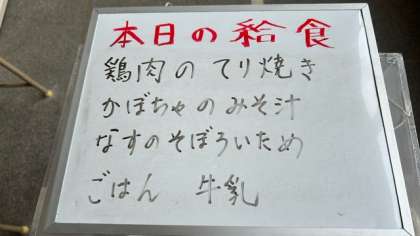 本日の給食
鶏肉の てり焼き
かぼちゃのみそ汁
なすのそぼろいため
ごはん 牛乳